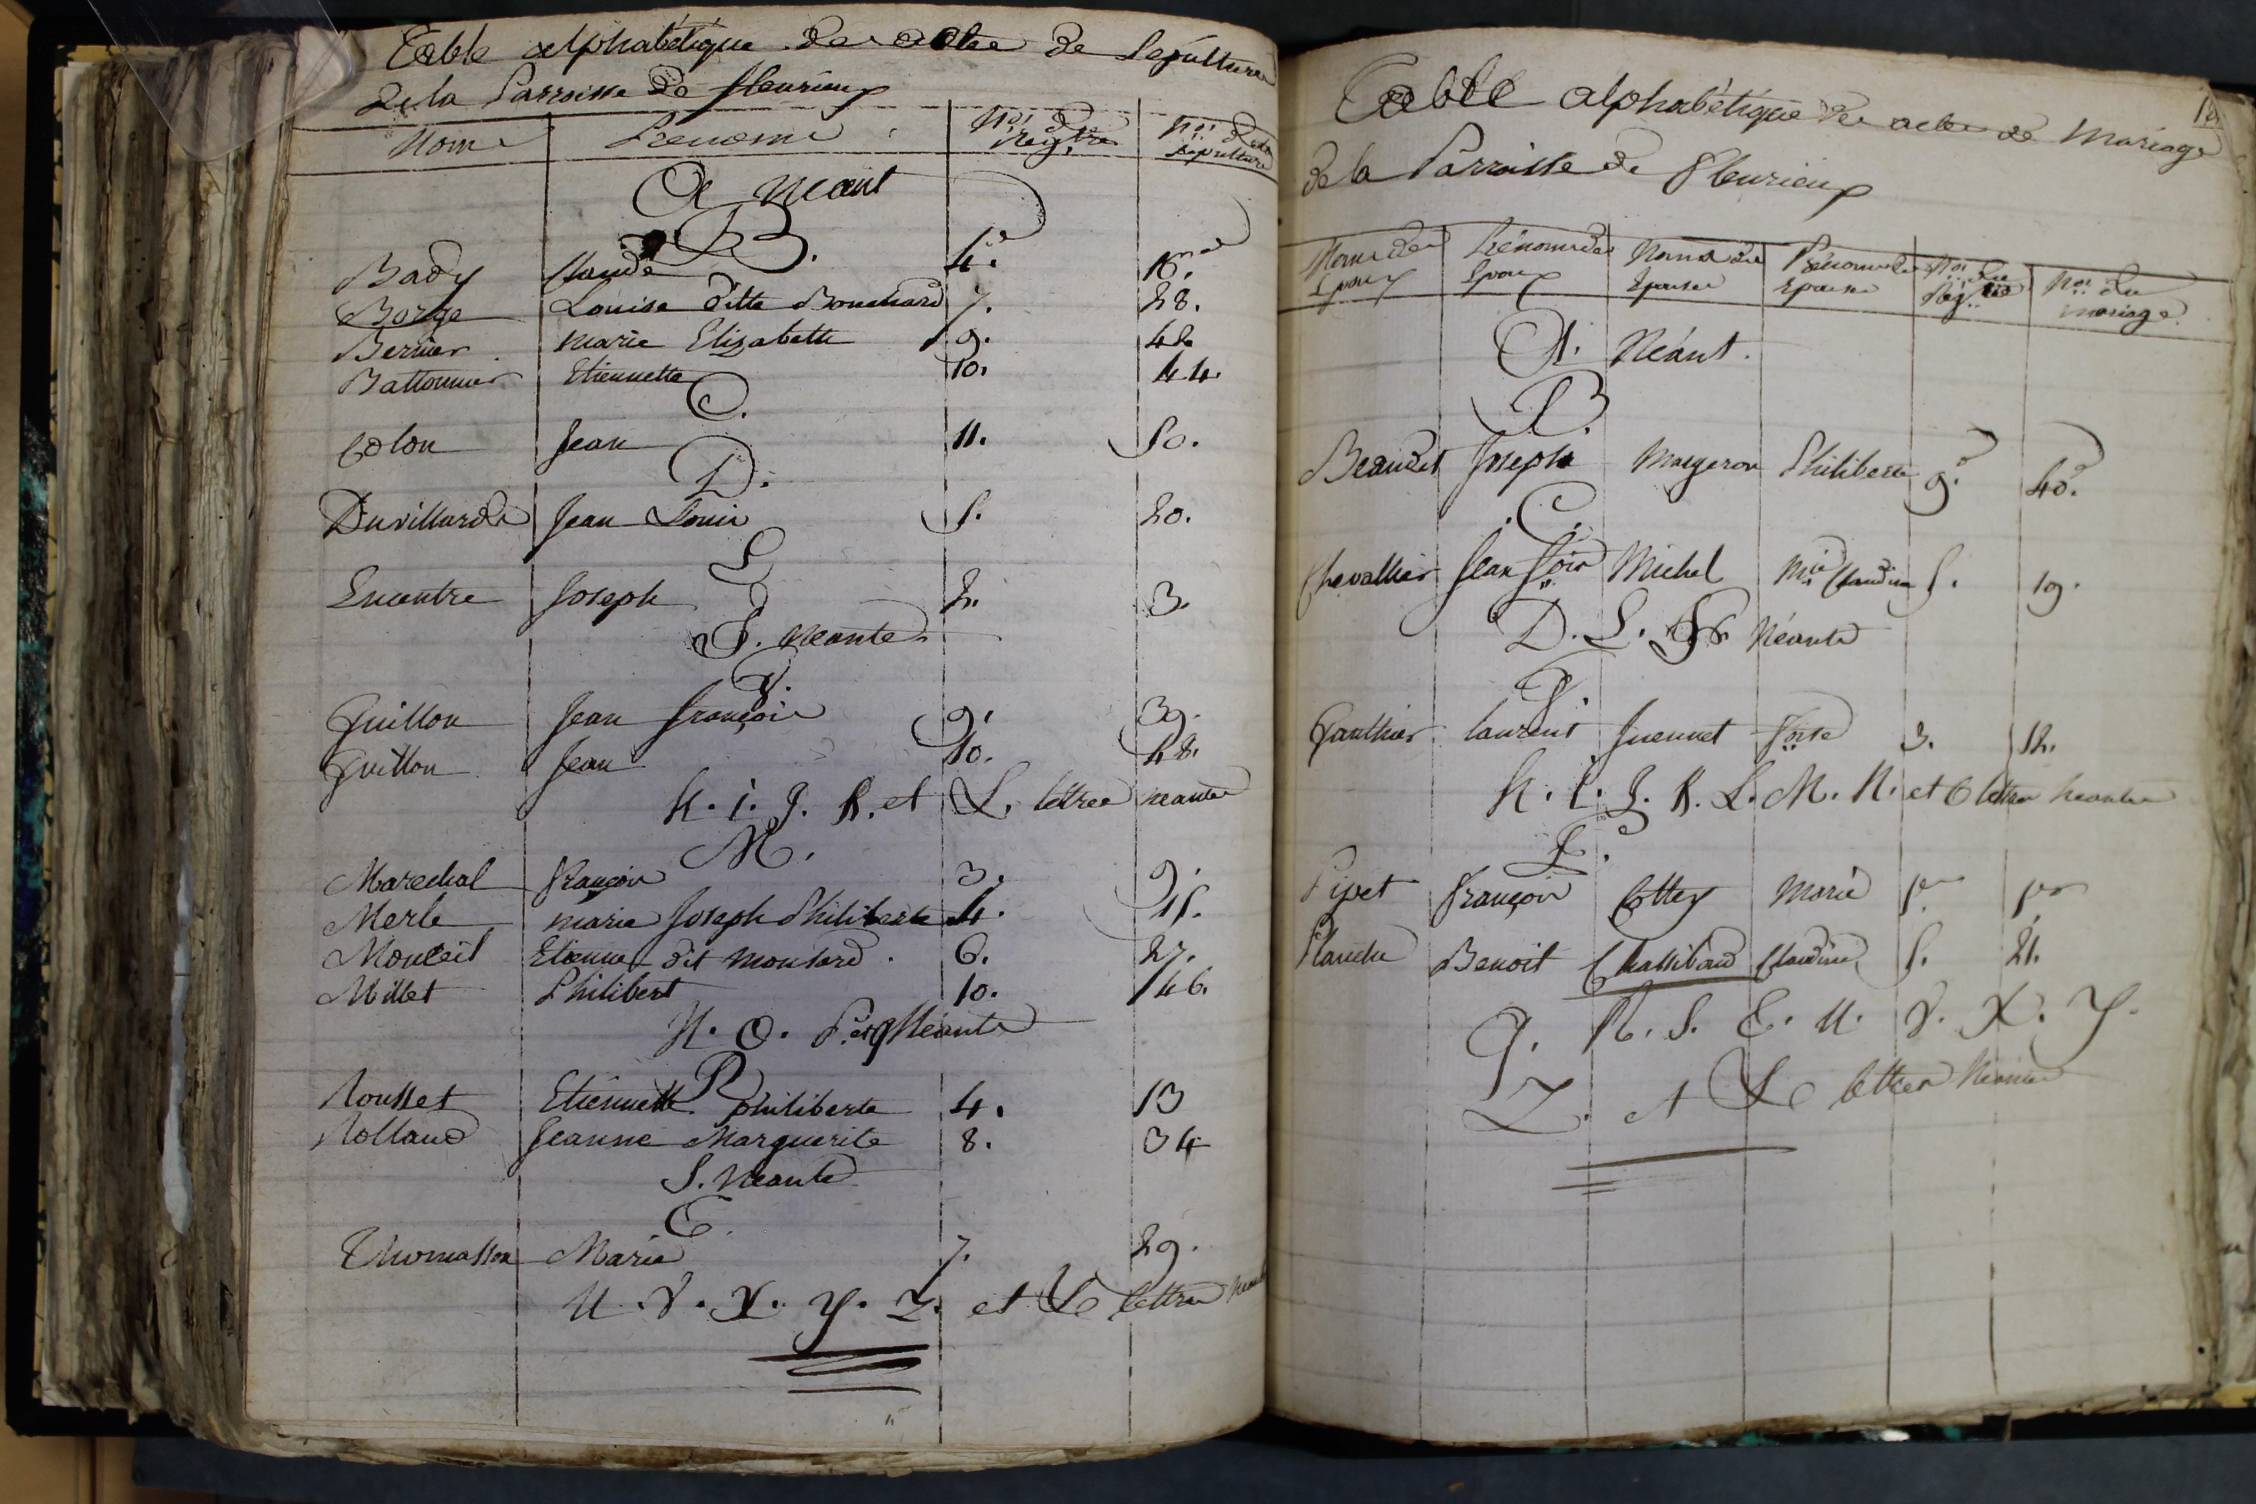 Table alphabétique des actes de Sepulture
de la Parroisse de fleurieux
Noms Prenoms Nos. du Regtre Nos. de la sepulture
A neant
B.
Bady Claude 4.e
Borge Louise ditte Bouchard 7. 28.
Bernier marie Elizabeth 9. 42
Battonnier Etiennette 10. 44.
C.
Colon Jean 11. 50.
D.
Duvillards Jean Louis 5. 20.
E
Encontre Joseph 2. 3.
F. neante
G.
Guillon Jean françois 9. 39.
Guillon Jean 10. 48.
h. i. J. K. et L. lettres neantes
M.
Marechal françois 3. 9.
Merle marie Joseph Philiberte 4. 15.
Etienne dit moutard 6. 27.
Millet Philibert 10. 46.
N. O. P. et q Néante
R
Rousset Etiennette philiberte 4. 13
Rolland Jeanne Marguerite 8. 34
S. neante
T.
Thomasson Marie 7. 29.
U. V. X. Y. Z. et & lettres
Table alphabétique des actes de Mariage
de la Parroisse de fleurieux
Noms des Epoux Prénoms des Epoux Noms des Epouses Prénoms des Epouses Nos. du Reg.tre Nos. du mariage
A. Néant.
B.
Joseph Mazeron Philiberte 9. 40.
C.
Chevallier Jean fois Michel Mie Claudine 5. 19.
D. E. F. Néants
G.
Gauthier laurent foise 3. 12.
h. i. J. K. L. M. N. et O lettres neantes
P.
Pipet françois Cottey Marie 1er 1er
Planche Benoit Chassibaud Claudine 5. 21.
q. R. S. T. U. V. X. Y.
Z. et & lettres